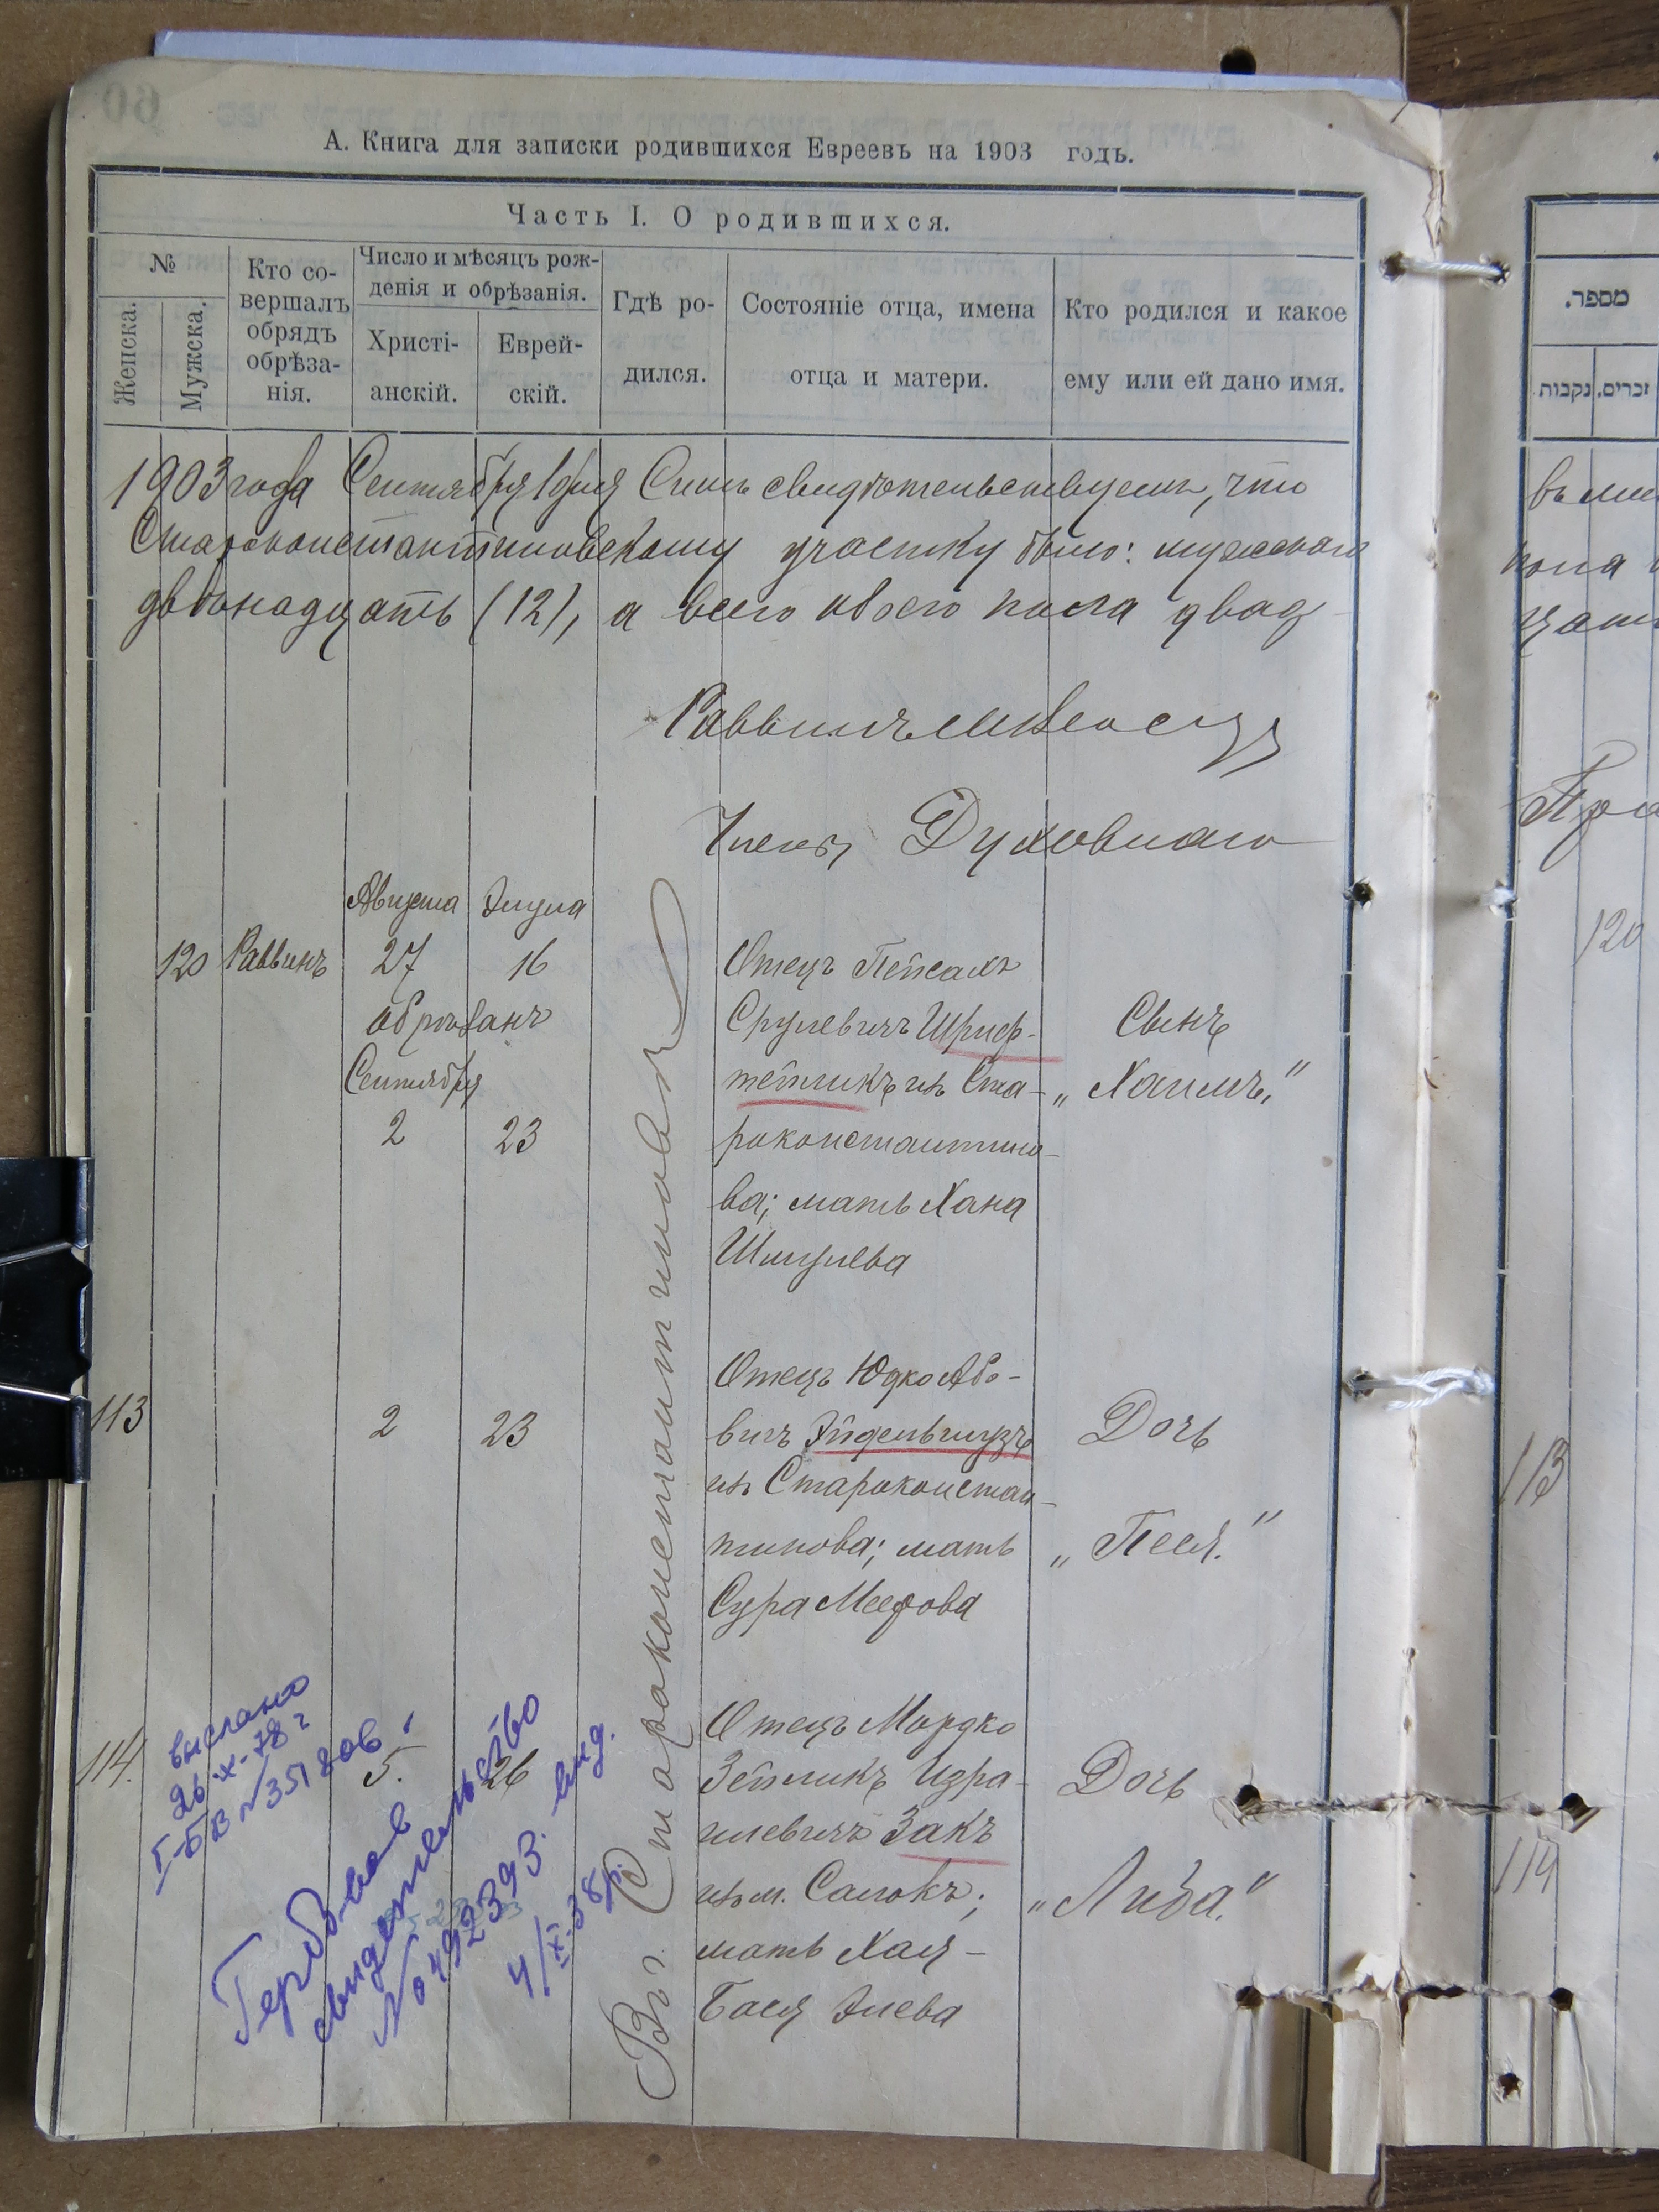 А. Книга для записки родившихся Евреевъ на 1903 годъ.
Часть I. О родившихся.
№
Женска.
Мужска.
Кто со-
вершалъ
обрядъ
обрѣза-
нія.
Число и мѣсяцъ рож-
денія и обрѣзанія.
Христі-
анскій.
Еврей-
скій.
Гдѣ ро-
дился.
Состояніе отца, имена
отца и матери.
Кто родился и какое
ему или ей дано имя.
1903 года Сентября 1 дня Симъ свидѣтельствуемъ, что
Староконстантиновскому участку было: мужскаго
двѣнадцать (12), а всего обоего пола двад-
Раввинъ
Члены Духовнаго
Августа Элула
120 Раввинъ 27 16
обрѣзанъ
Сентября
2 23
Отецъ Пейсахъ
Срулевичъ Шриф-
тейликъ изъ Ста-
роконстантино-
ва; мать Хана
Шмулева
Сынъ
„Хаимъ."
Въ г. Староконстантиновѣ
113 2 23
Отецъ Юдко Або-
вичъ Эйдельшузъ
изъ Староконстан-
тинова; мать
Сура Меерова
Дочь
„Песя."
114. 5. 26
Отецъ Мордко
Зейликъ Изра-
илевичъ Закъ
изъ м. Салокъ;
мать Хая-
Бася Элева
Дочь
„Либа."
выслано
26-X-78 г
I-БВ №351806
Гербовое
свидетельство
№ 0492393. выд.
4/IX-38р.
מספר.
נקבות
זכרים.
пола
120
113
114